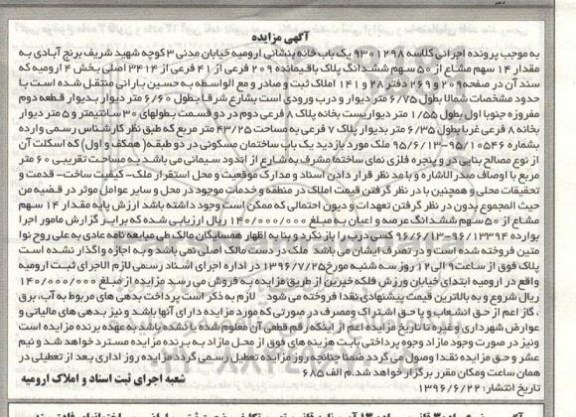 آگهی مزایده
به موجب پرونده اجرائی کلاسه 9301298 یک باب خانه بنشانی ارومیه خیابان مدنی 3 کوچه شهید شریف برنج آبادی به
مقدار 14 سهم مشاع از 50 سهم ششدانگ پلاک باقیمانده 209 فرعی از 41 فرعی از 3414 اصلی بخش 4 ارومیه که
سند آن در صفحه 209 و 269 دفتر 28 و 141 املاک ثبت و صادر و مع الواسطه به حسین بارانی منتقل شده است با
حدود مشخصات شمالا بطول 6/75 متر دیوار و درب ورودی است بشارع شرقا بطول 6/60 متر دیوار بدیوار قطعه دوم
مفروزه جنوبا اول بطول 1/55 متر دیواریست بخانه پلاک 8 فرعی دوم در دو قسمت بطولهای 30 سانتیمتر و 5 متر دیوار
بخانه 8 فرعی غربا بطول 6/35 متر بدیوار پلاک 7 فرعی به مساحت 43/25 متر مربع که طبق نظر کارشناس رسمی وارده
بشماره 95/10546-95/6/13 ملک مورد بازدید یک باب ساختمان مسکونی در دو طبقه( همکف و اول) که اسکلت آن
از نوع مصالح بنایی در و پنجره فلزی نمای ساختما مشرف به شارع از اندود سیمانی می باشد به مساحت تقریبی 60 متر
مربع با اوصاف صدر الاشاره و با مد نظر قرار دادن اسناد و مدارک موقعیت و محل استقرار ملک- کیفیت ساخت- قدمت و
تحقیقات محلی و همچنین با در نظر گرفتن قیمت املاک در منطقه و خدمات موجود در محل و سایر عوامل موثر در قضیه من
حیث المجموع بدون در نظر گرفتن تعهدات و دیون احتمالی که ممکن است وجود داشته باشد ارزش پایه مقدار 14 سهم
مشاع از 50 سهم ششدانگ عرصه و اعیان به مبلغ 140/000/000 ریال ارزیابی شده که برابر گزارش مامور اجرا
بوارده 96/13394-96/6/13 کسی درب را باز نکرد و بنا به اظهار همسایگان مالک طی مبایعه نامه عادی به علی روح نوا
متین فروخته شده است و در تصرف ایشان می باشد ملک در دست مالک اصلی نمی باشد و به اجازه واگذار نشده است
پلاک فوق از ساعت 9 الی 12 روز سه شنبه مورخ 1396/7/25 در اداره اجرای اسناد رسمی لازم الاجرای ثبت ارومیه
واقع در ارومیه ابتدای خیابان ورزش فلکه خیرین از طریق مزایده به فروش می رسد مزایده از مبلغ 140/000/000
ریال شروع و به بالاترین قیمت پیشنهادی نقدا فروخته می شود لازم به ذکر است پرداخت بدهی های مربوط به آب، برق
، گاز اعم از حق انشعاب و یا حق اشتراک ومصرف در صورتی که مورد مزایده دارای آنها باشد و نیز بدهی های مالیاتی و
عوارض شهرداری و غیره تا تاریخ مزایده اعم از اینکه رقم قطعی آن معلوم شده یا نشده باشد به عهده برنده مزایده است
و نیز در صورت وجود مازاد وجوه پرداختی بابت هزینه های فوق از محل مازاد به برنده مزایده مسترد خواهد شد و نیم
عشر و حق مزایده نقدا وصول می گردد ضمنا چنانچه روز مزایده تعطیل رسمی گردد مزایده روز اداری بعد از تعطیلی در
همان ساعت ومکان مقرر برگزار خواهد شد.م الف 685
شعبه اجرای ثبت اسناد و املاک ارومیه
تاریخ انتشار: 1396/6/22